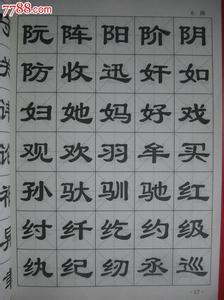 7788.com
6 画
阮 阵 阳 阶 阴
防 收 迅 奸 如
妇 她 妈 好 戏
观 欢 羽 牟 买
孙 驮 驯 驰 红
纣 纤 纥 约 级
纨 纪 纫 丞 巡
·17·